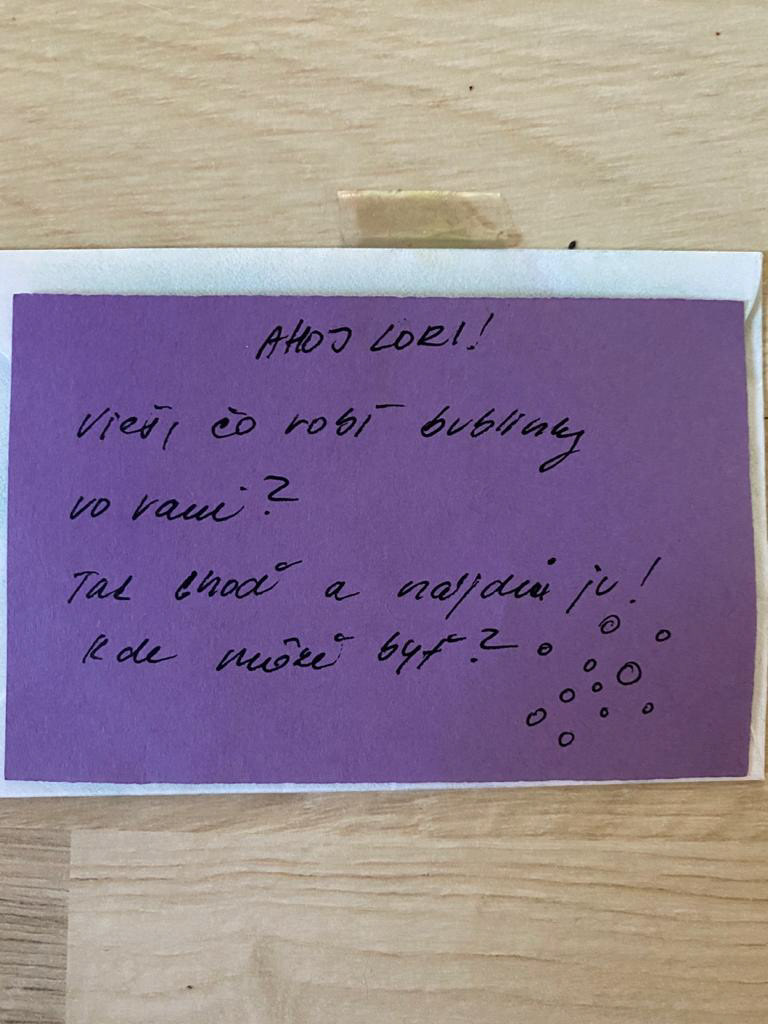 AHOJ LORI!
Vieš, čo robí bublinky
vo vani?
Tak choď a nájdi ju!
Kde môže byť?